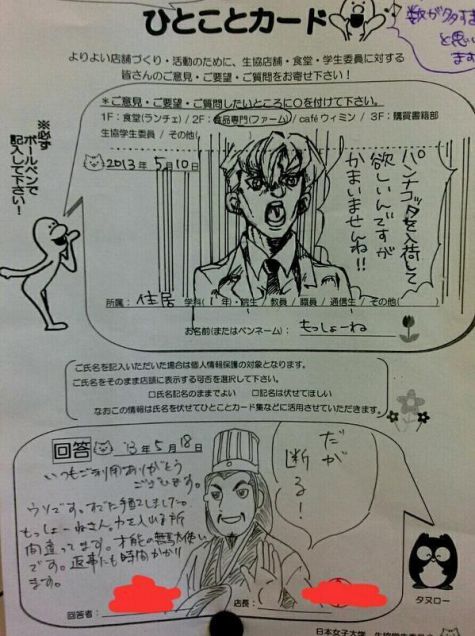 ひとことカード
数が夕すぎ
と思い
ます
よりよい店舗づくり・活動のために、生協店舗・食堂・学生委員に対する
皆さんのご意見・ご要望・ご質問をお寄せ下さい！
※必ず
ボールペンで
記入して下さい！
＊ご意見・ご要望・ご質問したいところに○を付けて下さい。
1F：食堂(ランチェ) / 2F：食品専門(ファーム) / caféウィミン / 3F：購買書籍部
生協学生委員 / その他(
2013年 5月10日
パンナコッタを入荷して
欲しいんですが
かまいませんね!!
所属： 住居 学科( 年)・院生 / 教員 / 職員 / 通信生 / その他(
お名前(またはペンネーム)： もっしょーね
ご氏名を記入いただいた場合は個人情報保護の対象となります。
ご氏名をそのまま店頭に表示する可否を選択して下さい。
□氏名記名のままでよい □記名は伏せてほしい
なおこの情報は氏名を伏せてひとことカード集などに活用させていただきます。
回答 '13年 5月18日
だが
断る！
いつもご利用ありがとう
ございます。
ウソです。すでに手配しました。
もっしょーねさん、力を入れる所
間違ってます。才能の無駄使い
です。返事にも時間かかり
ます。
回答者：
店長：
タヌロー
日本女子大学 生協学生委員会